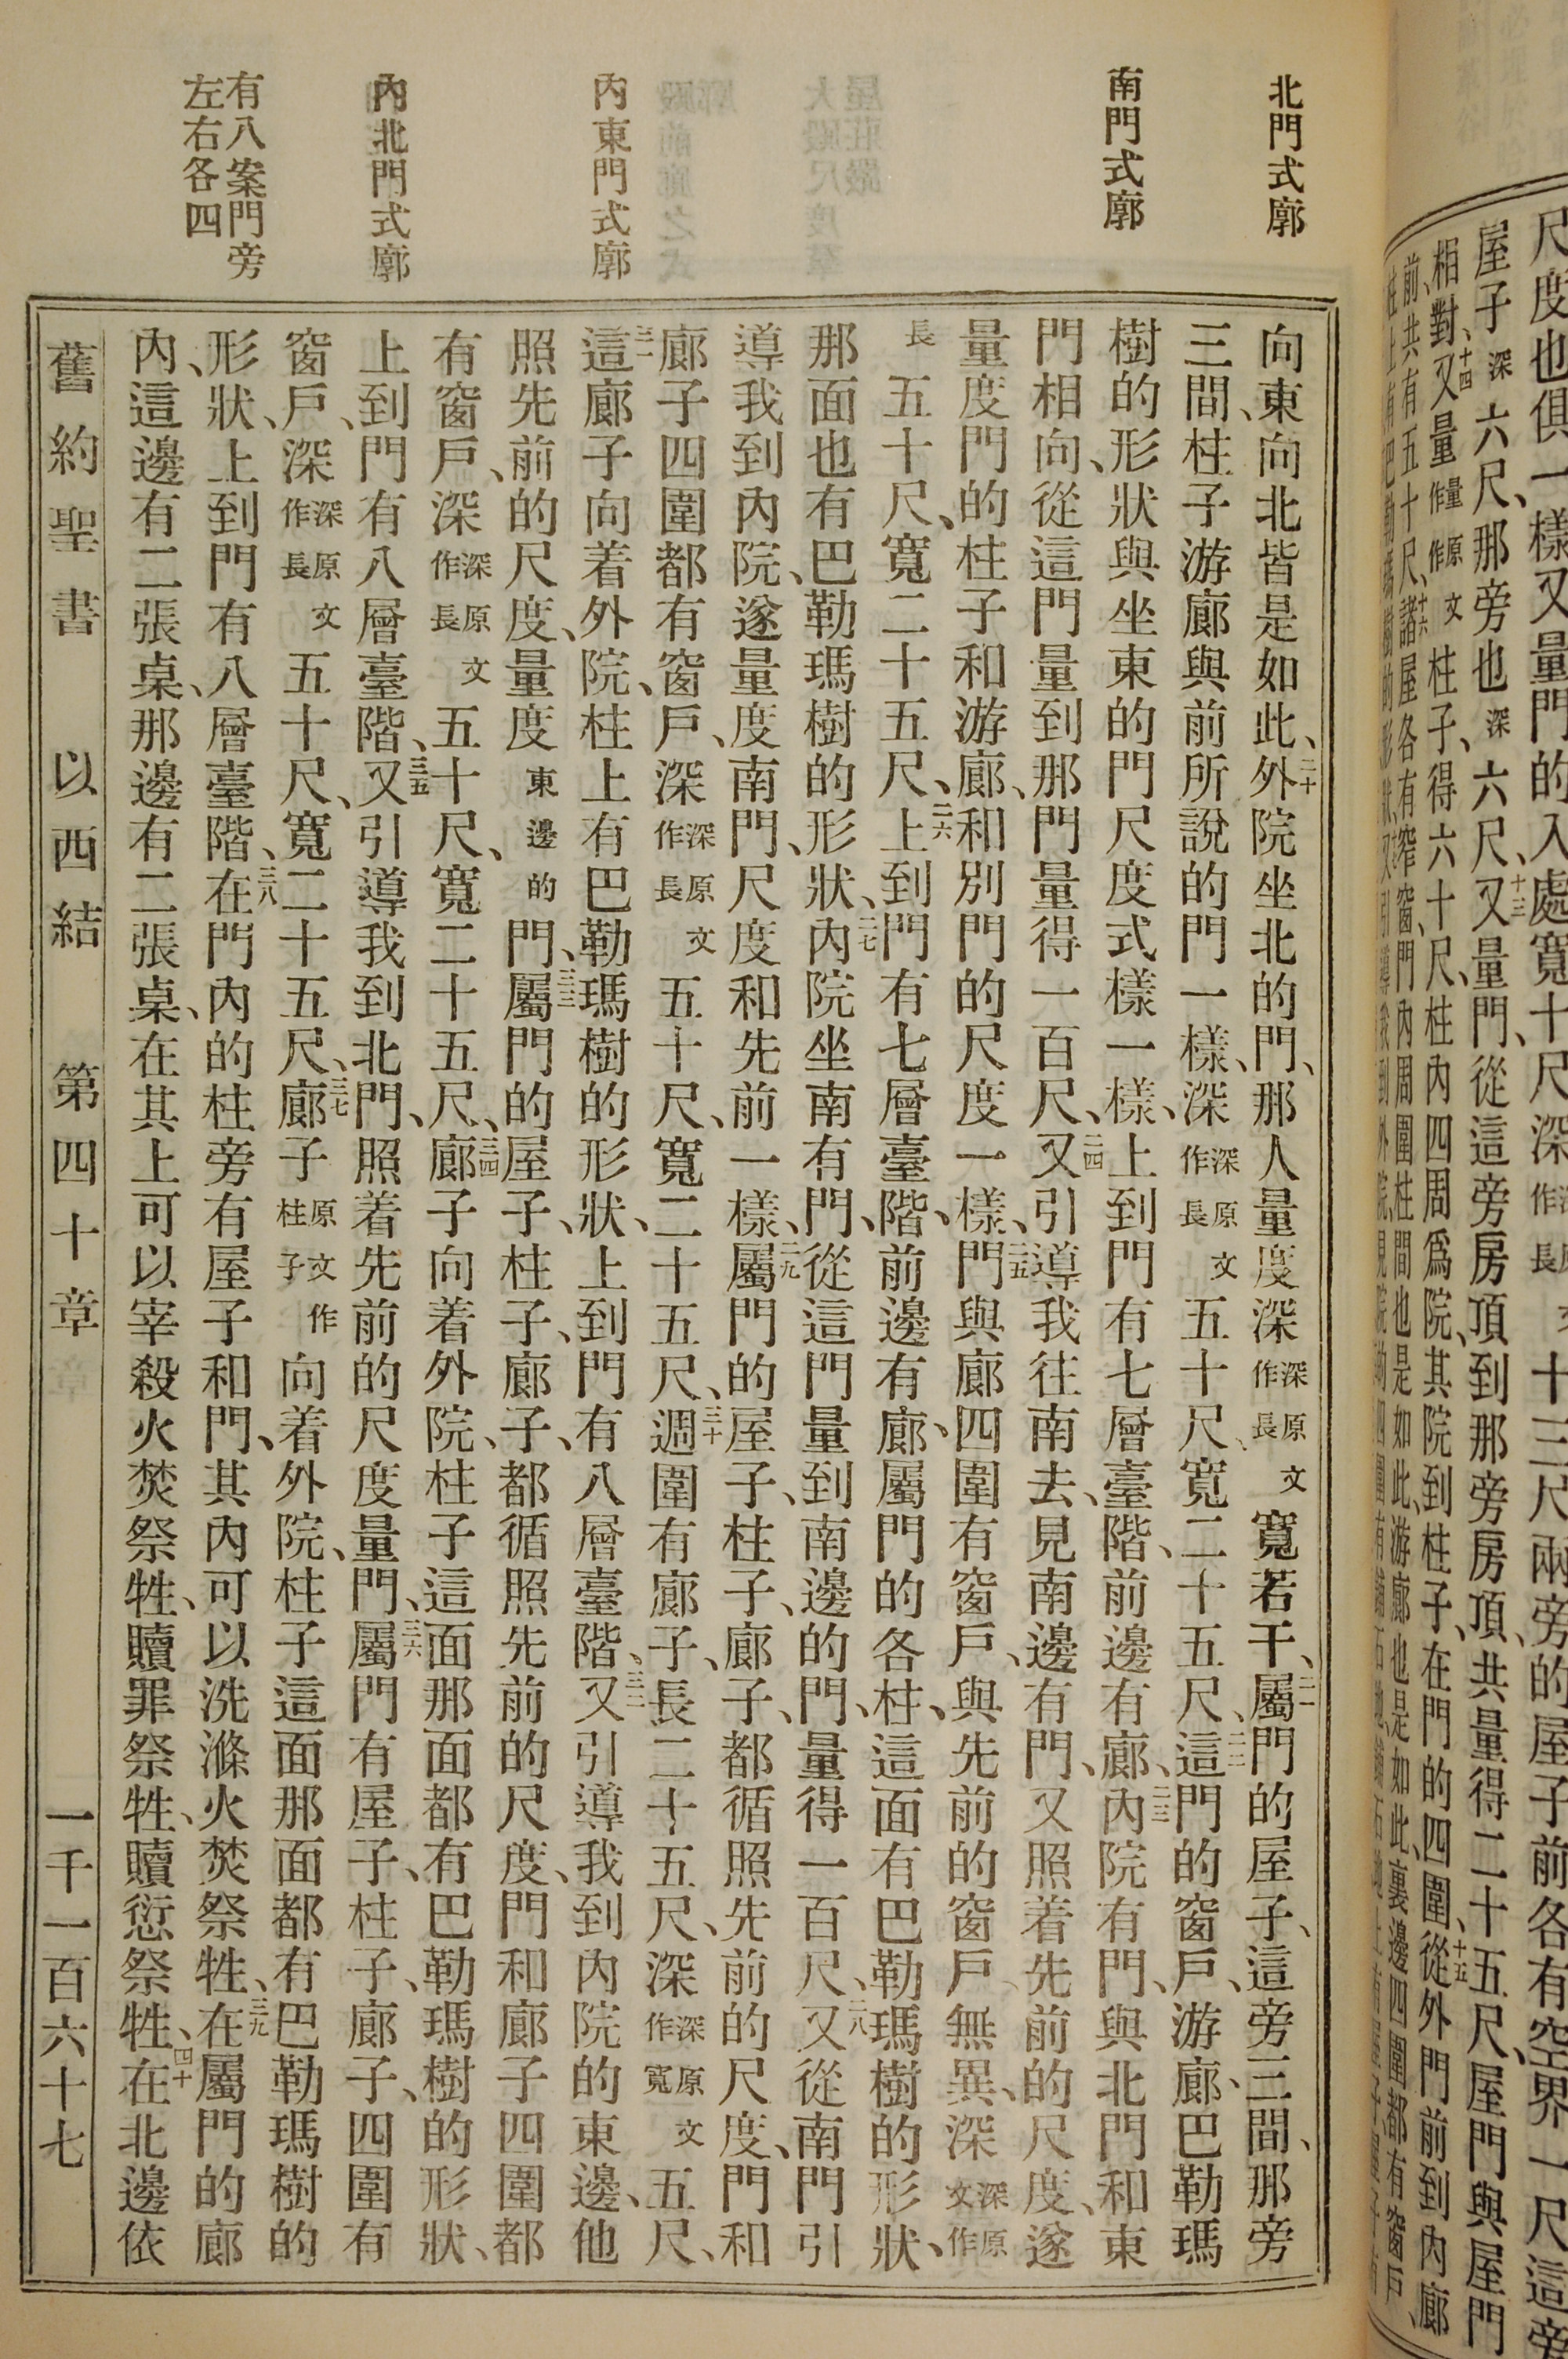 尺度也俱一樣又量門的入處寬十尺深 十三尺兩旁的屋子前各有空界一尺這旁
屋子深六尺、那旁也深六尺、十三又量門、從這旁房頂到那旁房頂、共量得二十五尺、屋門與屋門
相對、十四又量量原文作作柱子、得六十尺、柱內四周爲院、其院到柱子、在門的四圍、十五從外門前到內廊
前共有五十尺、十六諸屋各有窄窗、門內周圍柱間也是如此、游廊也是如此、裏邊四圍都有窗戶、
柱上有巴勒瑪樹的形狀、
北門式廓
南門式廓
內東門式廓
內北門式廓
有八案門旁
左右各四
向東向北皆是如此、二十外院坐北的門、那人量度深深原文作長寬若干、二一屬門的屋子、這旁三間、那旁
三間、柱子游廊與前所說的門一樣、深深原文作長五十尺、寬二十五尺、二二這門的窗戶、游廊、巴勒瑪
樹的形狀與坐東的門尺度式樣一樣、上到門有七層臺階、前邊有廊、二三內院有門、與北門和東
門相向、從這門量到那門量得一百尺、二四又引導我往南去、見南邊有門、又照着先前的尺度、遂
量度門的柱子和游廊、和別門的尺度一樣、二五門與廊四圍有窗戶、與先前的窗戶無異、深深原文作
長五十尺、寬二十五尺、二六上到門有七層臺階、前邊有廊、屬門的各柱、這面有巴勒瑪樹的形狀、
那面也有巴勒瑪樹的形狀、二七內院坐南有門、從這門量到南邊的門、量得一百尺、二八又從南門引
導我到內院、遂量度南門、尺度和先前一樣、二九屬門的屋子、柱子、廊子、都循照先前的尺度、門和
廊子四圍都有窗戶、深深原文作長五十尺、寬二十五尺、三十週圍有廊子、長二十五尺、深深原文作寬五尺、
三一這廊子向着外院、柱上有巴勒瑪樹的形狀、上到門有八層臺階、三二又引導我到內院的東邊、他
照先前的尺度、量度東邊的門、三三屬門的屋子、柱子、廊子、都循照先前的尺度、門和廊子四圍都
有窗戶、深深原文作長五十尺、寬二十五尺、三四廊子向着外院、柱子這面那面都有巴勒瑪樹的形狀、
上到門有八層臺階、三五又引導我到北門、照着先前的尺度量門、三六屬門有屋子、柱子、廊子、四圍有
窗戶、深深原文作長五十尺、寬二十五尺、三七廊子原文作柱子向着外院、柱子這面那面都有巴勒瑪樹的
形狀、上到門有八層臺階、三八在門內的柱旁有屋子和門、其內可以洗滌火焚祭牲、三九在屬門的廊
內、這邊有二張桌、那邊有二張桌、在其上可以宰殺火焚祭牲、贖罪祭牲、贖愆祭牲、四十在北邊依
舊約聖書 以西結 第四十章 一千一百六十七